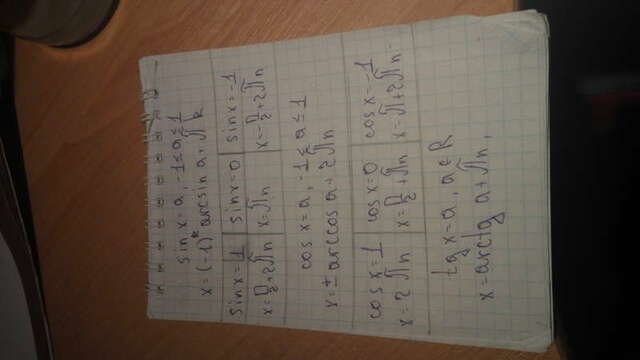 sin x = a, -1 ≤ a ≤ 1
x = (-1)ᵏ arcsin a + πk
sin x = 1
sin x = 0
sin x = -1
x = π/2 + 2πn
x = πn
x - π/2 + 2πn
cos x = a, -1 ≤ a ≤ 1
x = ± arccos a + 2πn
cos x = 1
cos x = 0
cos x = -1
x = 2πn
x = π/2 + πn
x = π + 2πn
tg x = a, a ∈ R
x = arctg a + πn,